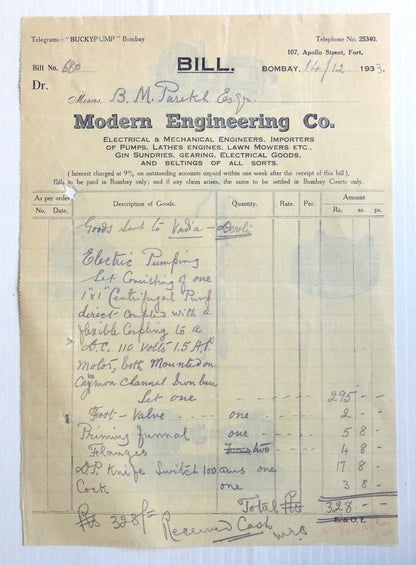 Telegrams:- "BUCKYPUMP" Bombay
Telephone No. 25340.
107, Apollo Street, Fort,
Bill No. 680
BILL.
BOMBAY, 14/12 1933.
Dr.
Messrs. B. M. Parekh Esqr.
Modern Engineering Co.
ELECTRICAL & MECHANICAL ENGINEERS, IMPORTERS
OF PUMPS, LATHES ENGINES, LAWN MOWERS ETC.,
GIN SUNDRIES, GEARING, ELECTRICAL GOODS,
AND BELTINGS OF ALL SORTS.
(Interest charged at 9% on outstanding accounts unpaid within one week after the receipt of this bill),
Bills to be paid in Bombay only; and if any claim arises, the same to be settled in Bombay Courts only.
As per order Description of Goods. Quantity. Rate. Per. Amount
No. Date. Rs. as. ps.
Goods sent to Vadia - Devli
Electric Pumping
Set Consisting of one
1"x1" Centrifugal Pump
direct Coupled with a
flexible Coupling to a
D.C. 110 Volts 1.5 H.P.
Motor, both Mounted on
Channel Iron base
Set one 295 - -
Foot - Valve one 2 - -
Priming funnal one 5 8 -
Flanges two 4 8 -
D.P. Knife Switch 100 one 17 8 -
Cock one 3 8 -
Total Rs 328 - -
Rs 328/=
E. & O. E.
Received Cash